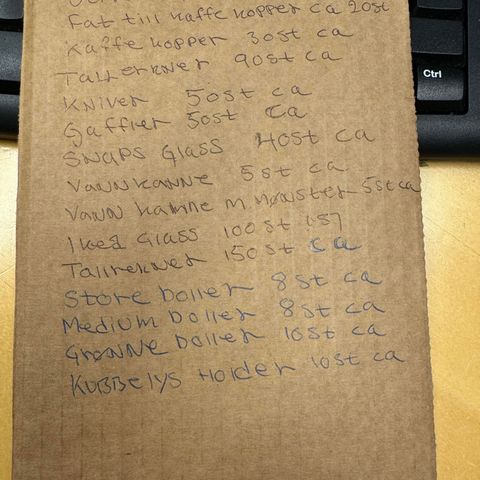 Fat till Kaffe Kopper ca 20st
Kaffe Kopper 30st ca
Tallerkner 90st ca
Kniver 50st ca
Gaffler 50st ca
Snaps Glass 40st ca
Vannkanne 5st ca
Vann kanne m. mønster 5st ca
Ikea Glass 100st
Tallrekner 150st ca
Store boller 8st ca
Medium boller 8st ca
Grønne boller 10st ca
Kubbelys Holder 10st ca
Ctrl